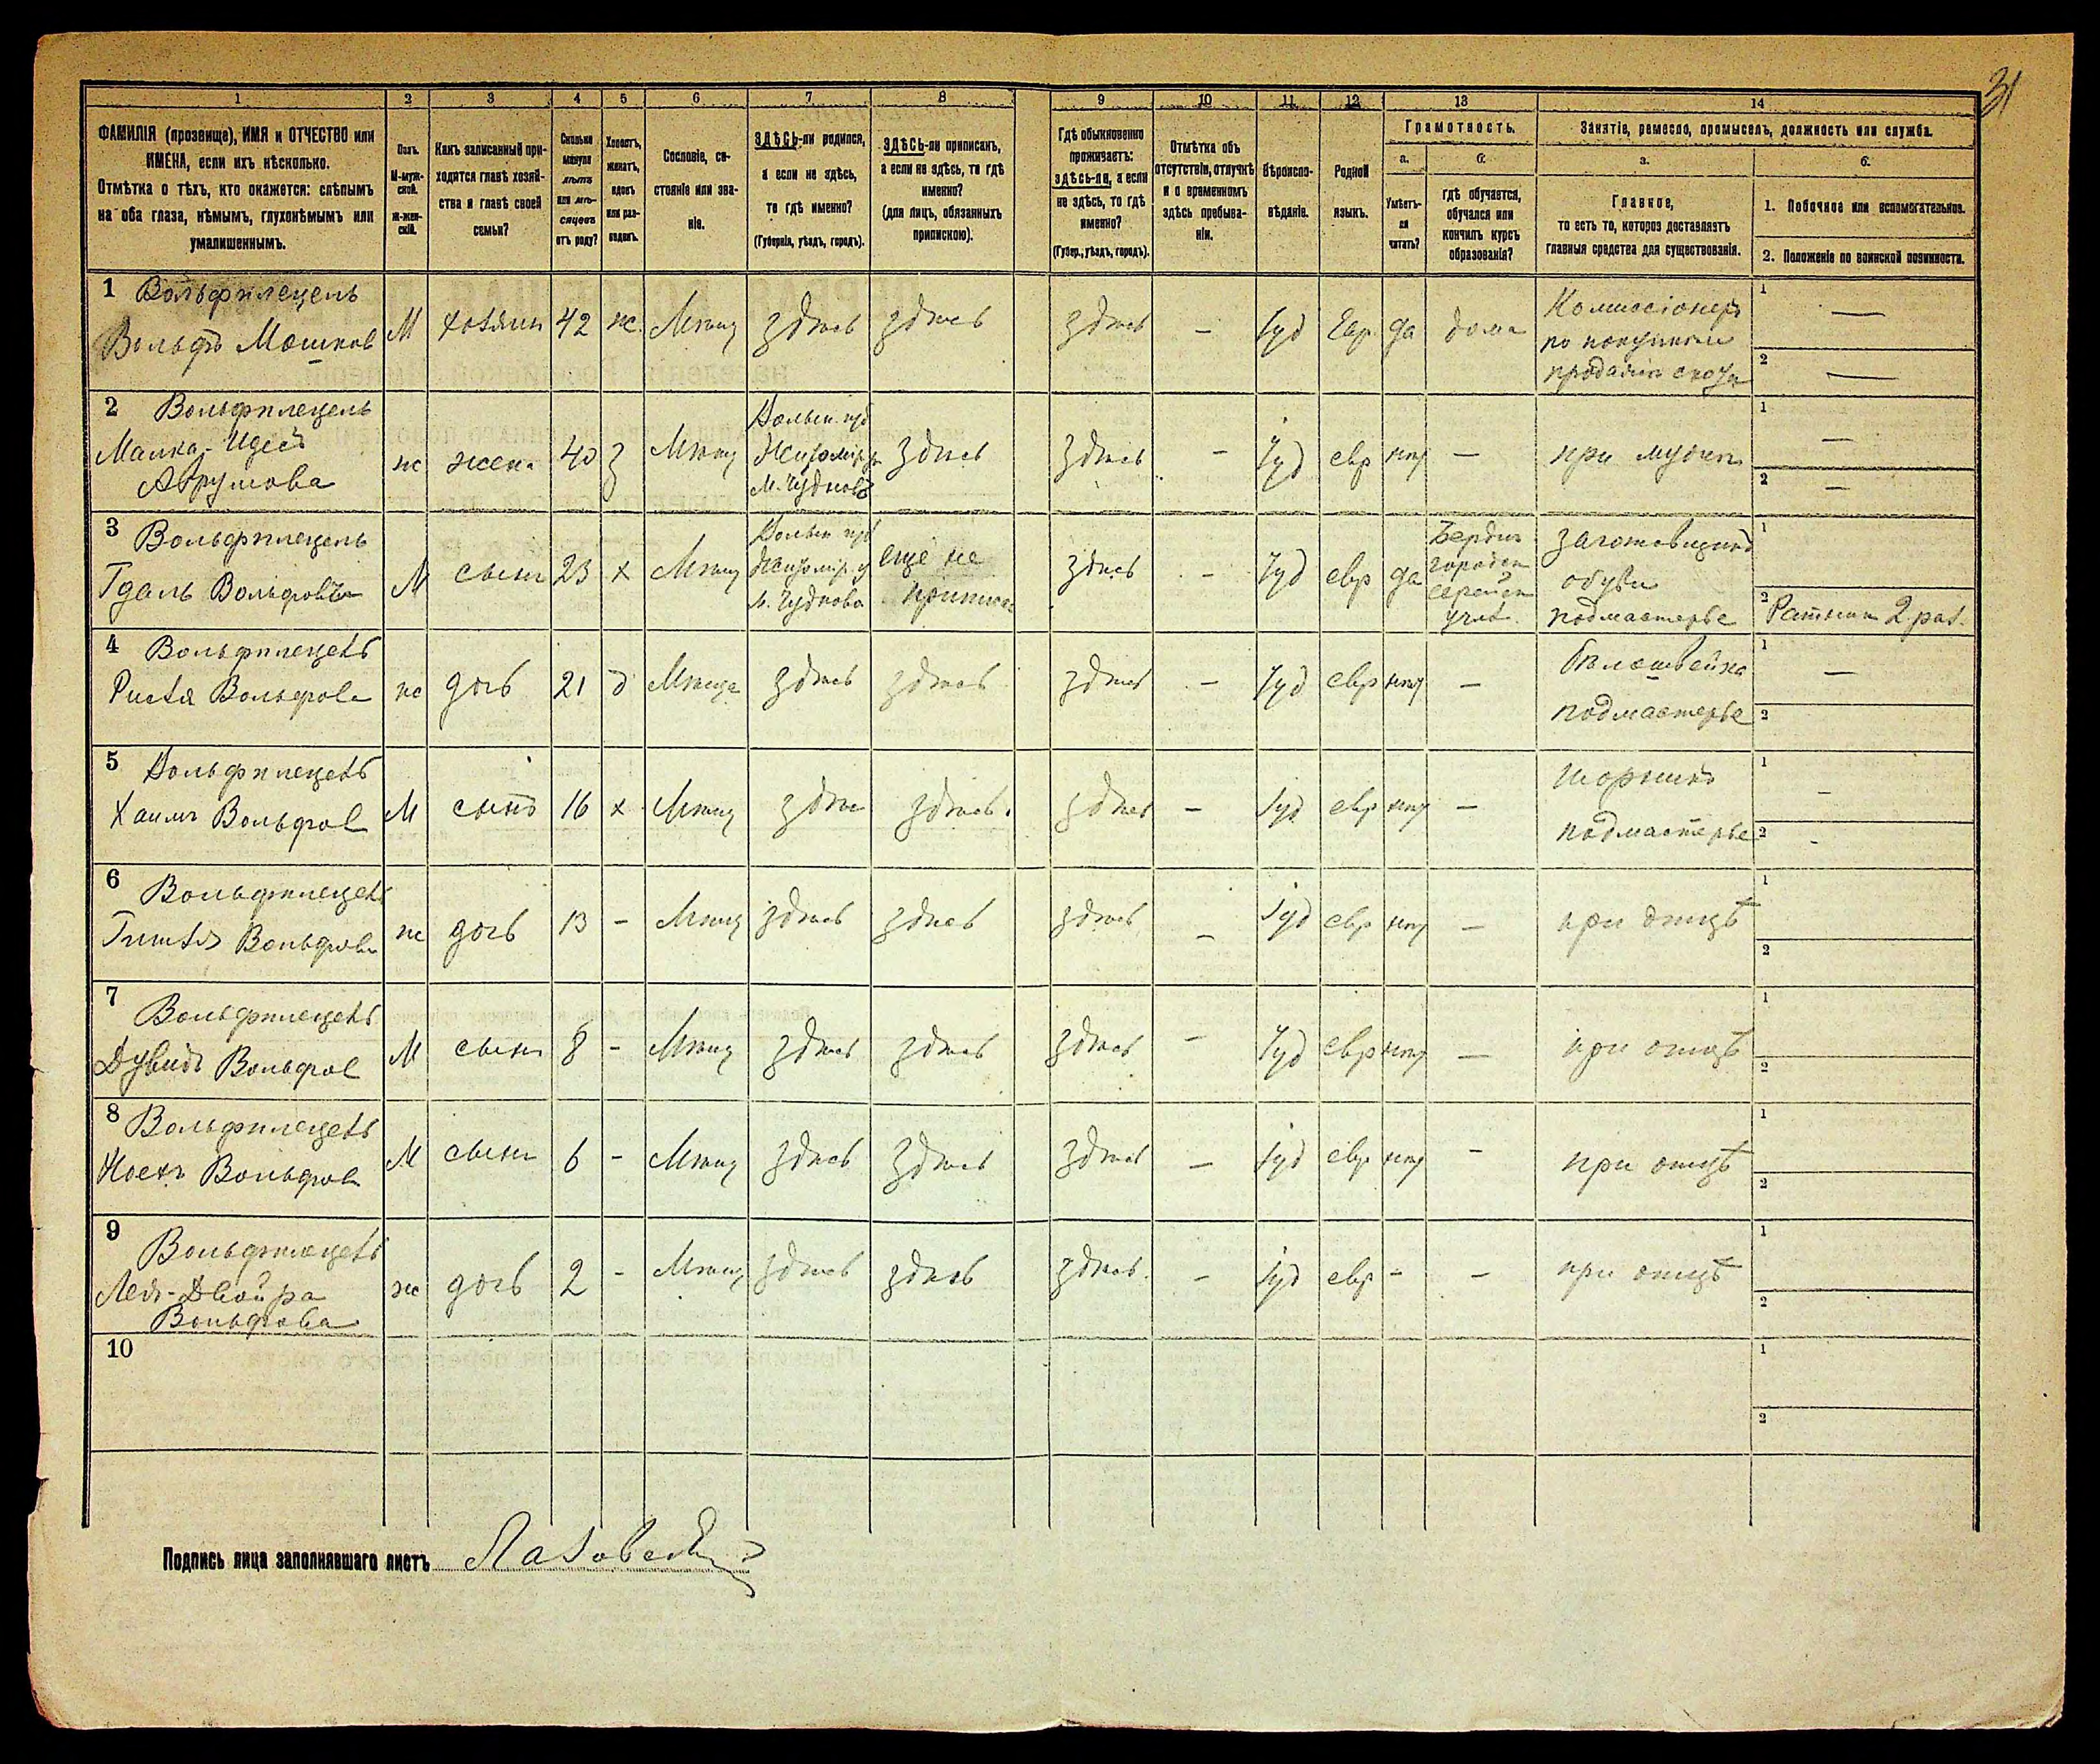 31
1 2 3 4 5 6 7 8 9 10 11 12 13 14
ФАМИЛІЯ (прозвище), ИМЯ и ОТЧЕСТВО или
ИМЕНА, если ихъ нѣсколько.
Отмѣтка о тѣхъ, кто окажется: слѣпымъ
на оба глаза, нѣмымъ, глухонѣмымъ или
умалишеннымъ.
Полъ.
М-муж-
ской.
Ж-жен-
скій.
Какъ записанный при-
ходится главѣ хозяй-
ства и главѣ своей
семьи?
Сколько
минуло
лѣтъ
или мѣ-
сяцевъ
отъ роду?
Холостъ,
женатъ,
вдовъ
или раз-
веденъ.
Сословіе, со-
стояніе или зва-
ніе.
ЗДѢСЬ-ли родился,
а если не здѣсь,
то гдѣ именно?
(Губернія, уѣздъ, городъ).
ЗДѢСЬ-ли приписанъ,
а если не здѣсь, то гдѣ
именно?
(для лицъ, обязанныхъ
припискою).
Гдѣ обыкновенно
проживаетъ:
ЗДѢСЬ-ли, а если
не здѣсь, то гдѣ
именно?
(Губер., уѣздъ, городъ).
Отмѣтка объ
отсутствіи, отлучкѣ
и о временномъ
здѣсь пребыва-
ніи.
Вѣроиспо-
вѣданіе.
Родной
языкъ.
Грамотность.
а.
Умѣетъ-
ли
читать?
б.
гдѣ обучается,
обучался или
кончилъ курсъ
образованія?
Занятіе, ремесло, промыселъ, должность или служба.
а.
Главное,
то есть то, которое доставляетъ
главныя средства для существованія.
б.
1. Побочное или вспомогательное.
2. Положеніе по воинской повинности.
1 Вольфплецель
Вольфъ Мошков
М
хозяин
42
ж.
Мѣщ
здѣсь
здѣсь
здѣсь
—
Іуд
Евр
да
дома
Коммисіонеръ
по покупкѣ и
продажѣ скота
1 —
2 —
2 Вольфплецель
Малка-Идесъ
Аврумова
ж
жена
40
З
Мѣщ
Волын. губ
Житомір у
М. Чудновъ
здѣсь
здѣсь
—
Іуд
евр
нѣт
—
при мужѣ
1 —
2 —
3 Вольфплецель
Гдаль Вольфовъ
М
сынъ
23
х
Мѣщ
Волын губ
Житомір. у
м. Чудново
еще не
приписан
здѣсь
—
Іуд
евр
да
Бердич
городск
еврейск
учил.
заготовщикъ
обуви
подмастерье
1
2 Ратник 2 раз.
4 Вольфплецель
Рися Вольфова
ж
дочь
21
д
Мѣща
здѣсь
здѣсь
здѣсь
—
Іуд
евр
нѣт
—
бѣлошвейка
подмастерье
1 —
2
5 Вольфплецель
Хаимъ Вольфов
М
сынъ
16
х
Мѣщ
здѣс
здѣсь.
здѣсь
—
Іуд
евр
нѣт
—
шорникъ
подмастерье
1 –
2 -
6 Вольфплецель
Гитля Вольфова
ж
дочь
13
–
Мѣщ
здѣсь
здѣсь
здѣсь
—
Іуд
евр
нѣт
—
при отцѣ
1
2
7 Вольфплецель
Дувидъ Вольфов
М
сынъ
8
–
Мѣщ
здѣсь
здѣсь
здѣсь
—
Іуд
евр
нѣт
—
при отцѣ
1
2
8 Вольфплецель
Носхъ Вольфов
М
сынъ
6
–
Мѣщ
здѣсь
здѣсь
здѣсь
—
Іуд
евр
нѣт
—
при отцѣ
1
2
9 Вольфплецель
Лея-Двойра
Вольфова
ж
дочь
2
–
Мѣщ
здѣсь
здѣсь
здѣсь.
—
Іуд
евр
–
—
при отцѣ
1
2
10
1
2
Подпись лица заполнявшаго листъ